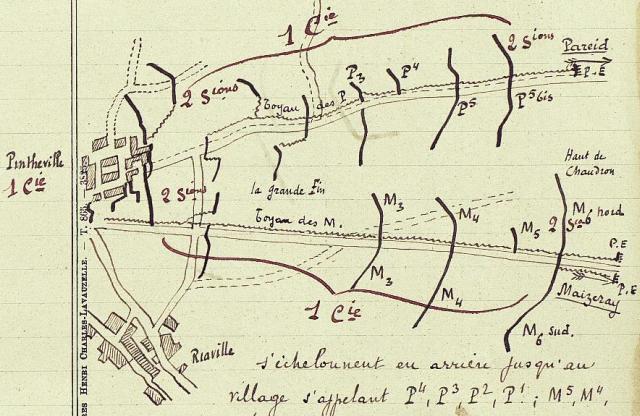 1 Cie
2 Sions
Pareid
P.E
2 Sions
Boyau des P
P3
P4
P5
P5 bis
Pintheville
1 Cie
2 Sions
la grande Fin
Haut de
Chaudron
Boyau des M.
M3
M4
M5
2 Sions
M6 nord
P.E
P.E
Maizeray
M3
M4
1 Cie
M6 sud.
Riaville
ES HENRI CHARLES-LAVAUZELLE. T. 862
s'échelonnent en arrière jusqu'au
village s'appelant P4, P3, P2, P1 ; M5, M4,